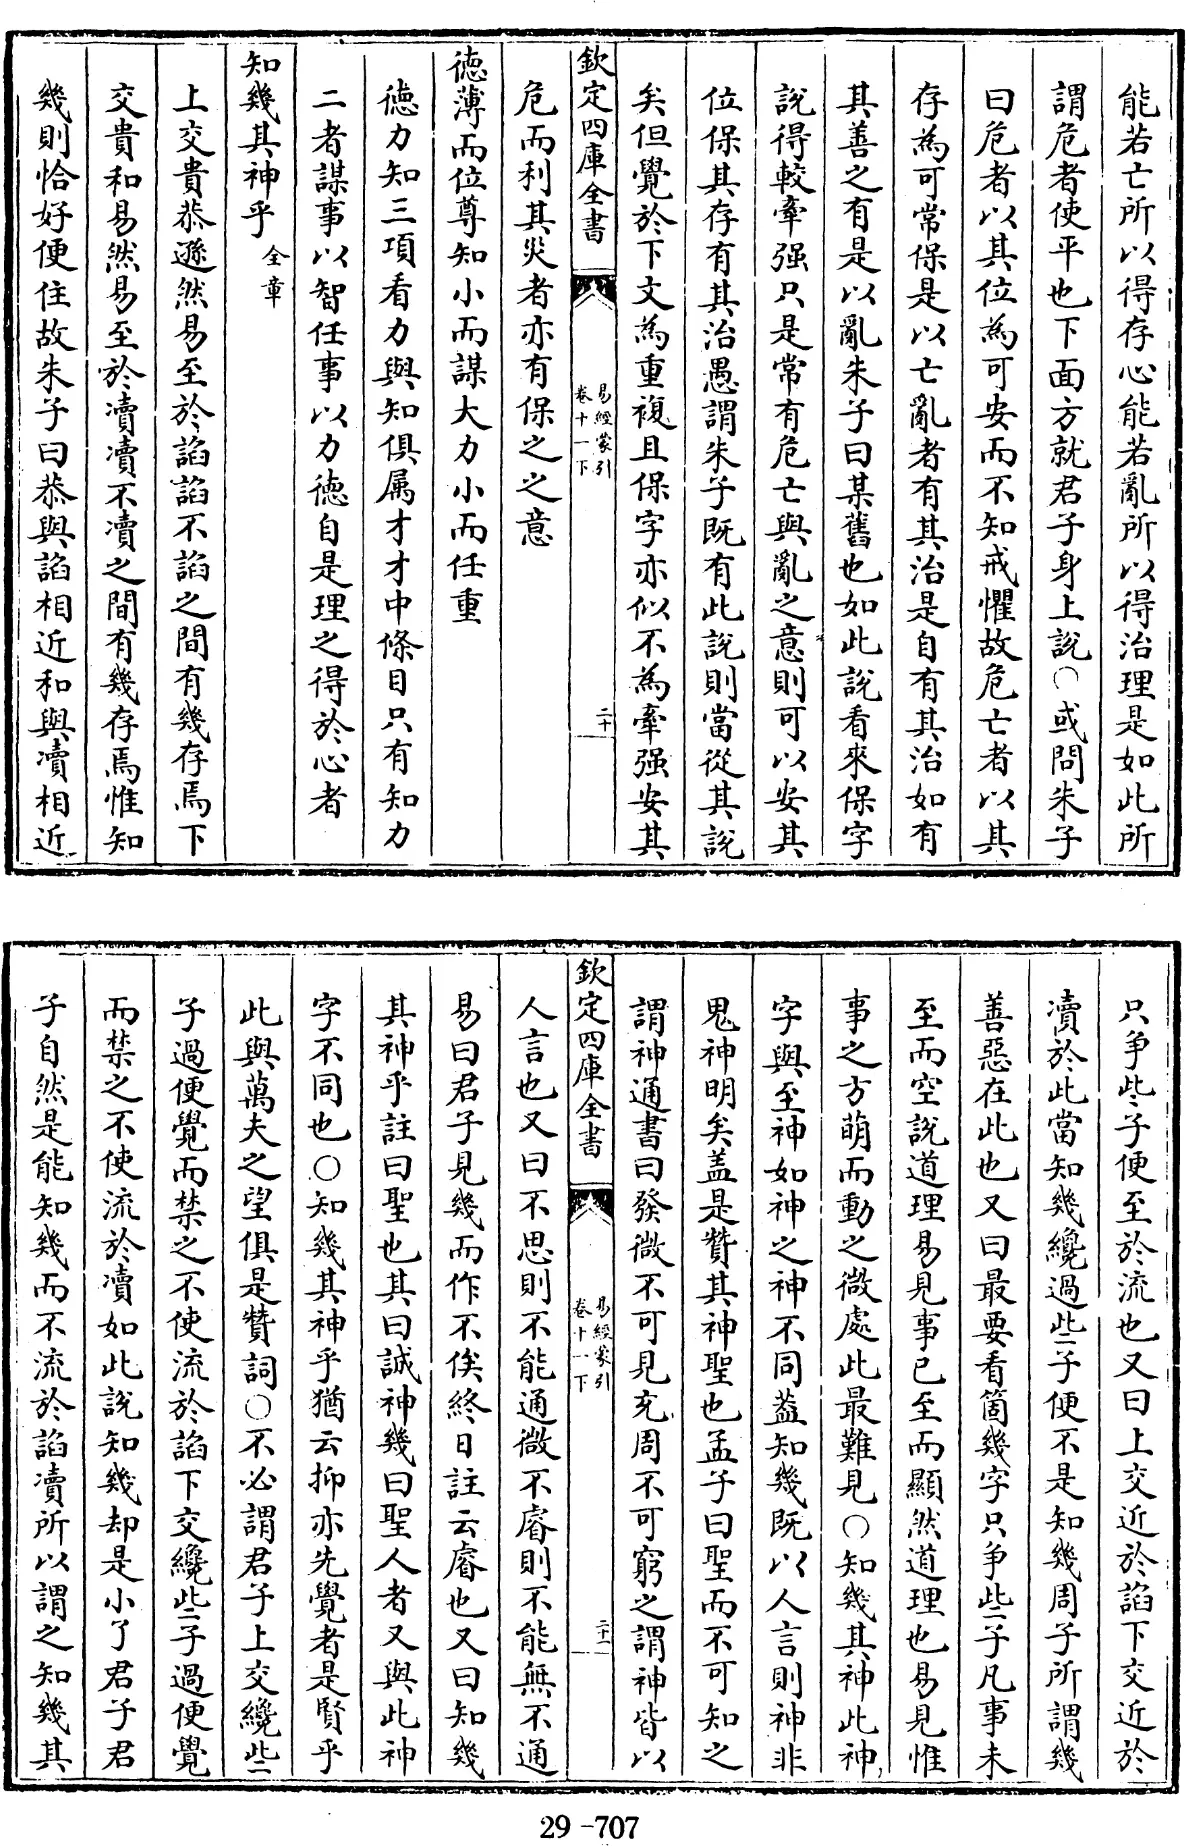 能若亡所以得存心能若亂所以得治理是如此所
謂危者使平也下面方就君子身上說○或問朱子
曰危者以其位為可安而不知戒懼故危亡者以其
存為可常保是以亡亂者有其治是自有其治如有
其善之有是以亂朱子曰某舊也如此說看來保字
說得較牽强只是常有危亡與亂之意則可以安其
位保其存有其治愚謂朱子既有此說則當從其說
矣但覺於下文為重複且保字亦似不為牽强安其
欽定四庫全書
易經蒙引
卷十一下
二十
危而利其災者亦有保之之意
德薄而位尊知小而謀大力小而任重
德力知三項看力與知俱属才才中條目只有知力
二者謀事以智任事以力德自是理之得於心者
知幾其神乎全章
上交貴恭遜然易至於諂諂不諂之間有幾存焉下
交貴和易然易至於瀆瀆不瀆之間有幾存焉惟知
幾則恰好便住故朱子曰恭與諂相近和與瀆相近
只争些子便至於流也又曰上交近於諂下交近於
瀆於此當知幾纔過些子便不是知幾周子所謂幾
善惡在此也又曰最要看箇幾字只争些子凡事未
至而空說道理易見事已至而顯然道理也易見惟
事之方萌而動之微處此最難見○知幾其神此神
字與至神如神之神不同蓋知幾既以人言則神非
鬼神明矣盖是贊其神聖也孟子曰聖而不可知之
謂神通書曰發微不可見充周不可窮之謂神皆以
欽定四庫全書
易經蒙引
卷十一下
二十一
人言也又曰不思則不能通微不睿則不能無不通
易曰君子見幾而作不俟終日註云睿也又曰知幾
其神乎註曰聖也其曰誠神幾曰聖人者又與此神
字不同也○知幾其神乎猶云抑亦先覺者是賢乎
此與萬夫之望俱是贊詞○不必謂君子上交纔些
子過便覺而禁之不使流於諂下交纔些子過便覺
而禁之不使流於瀆如此說知幾却是小了君子君
子自然是能知幾而不流於諂瀆所以謂之知幾其
29-707